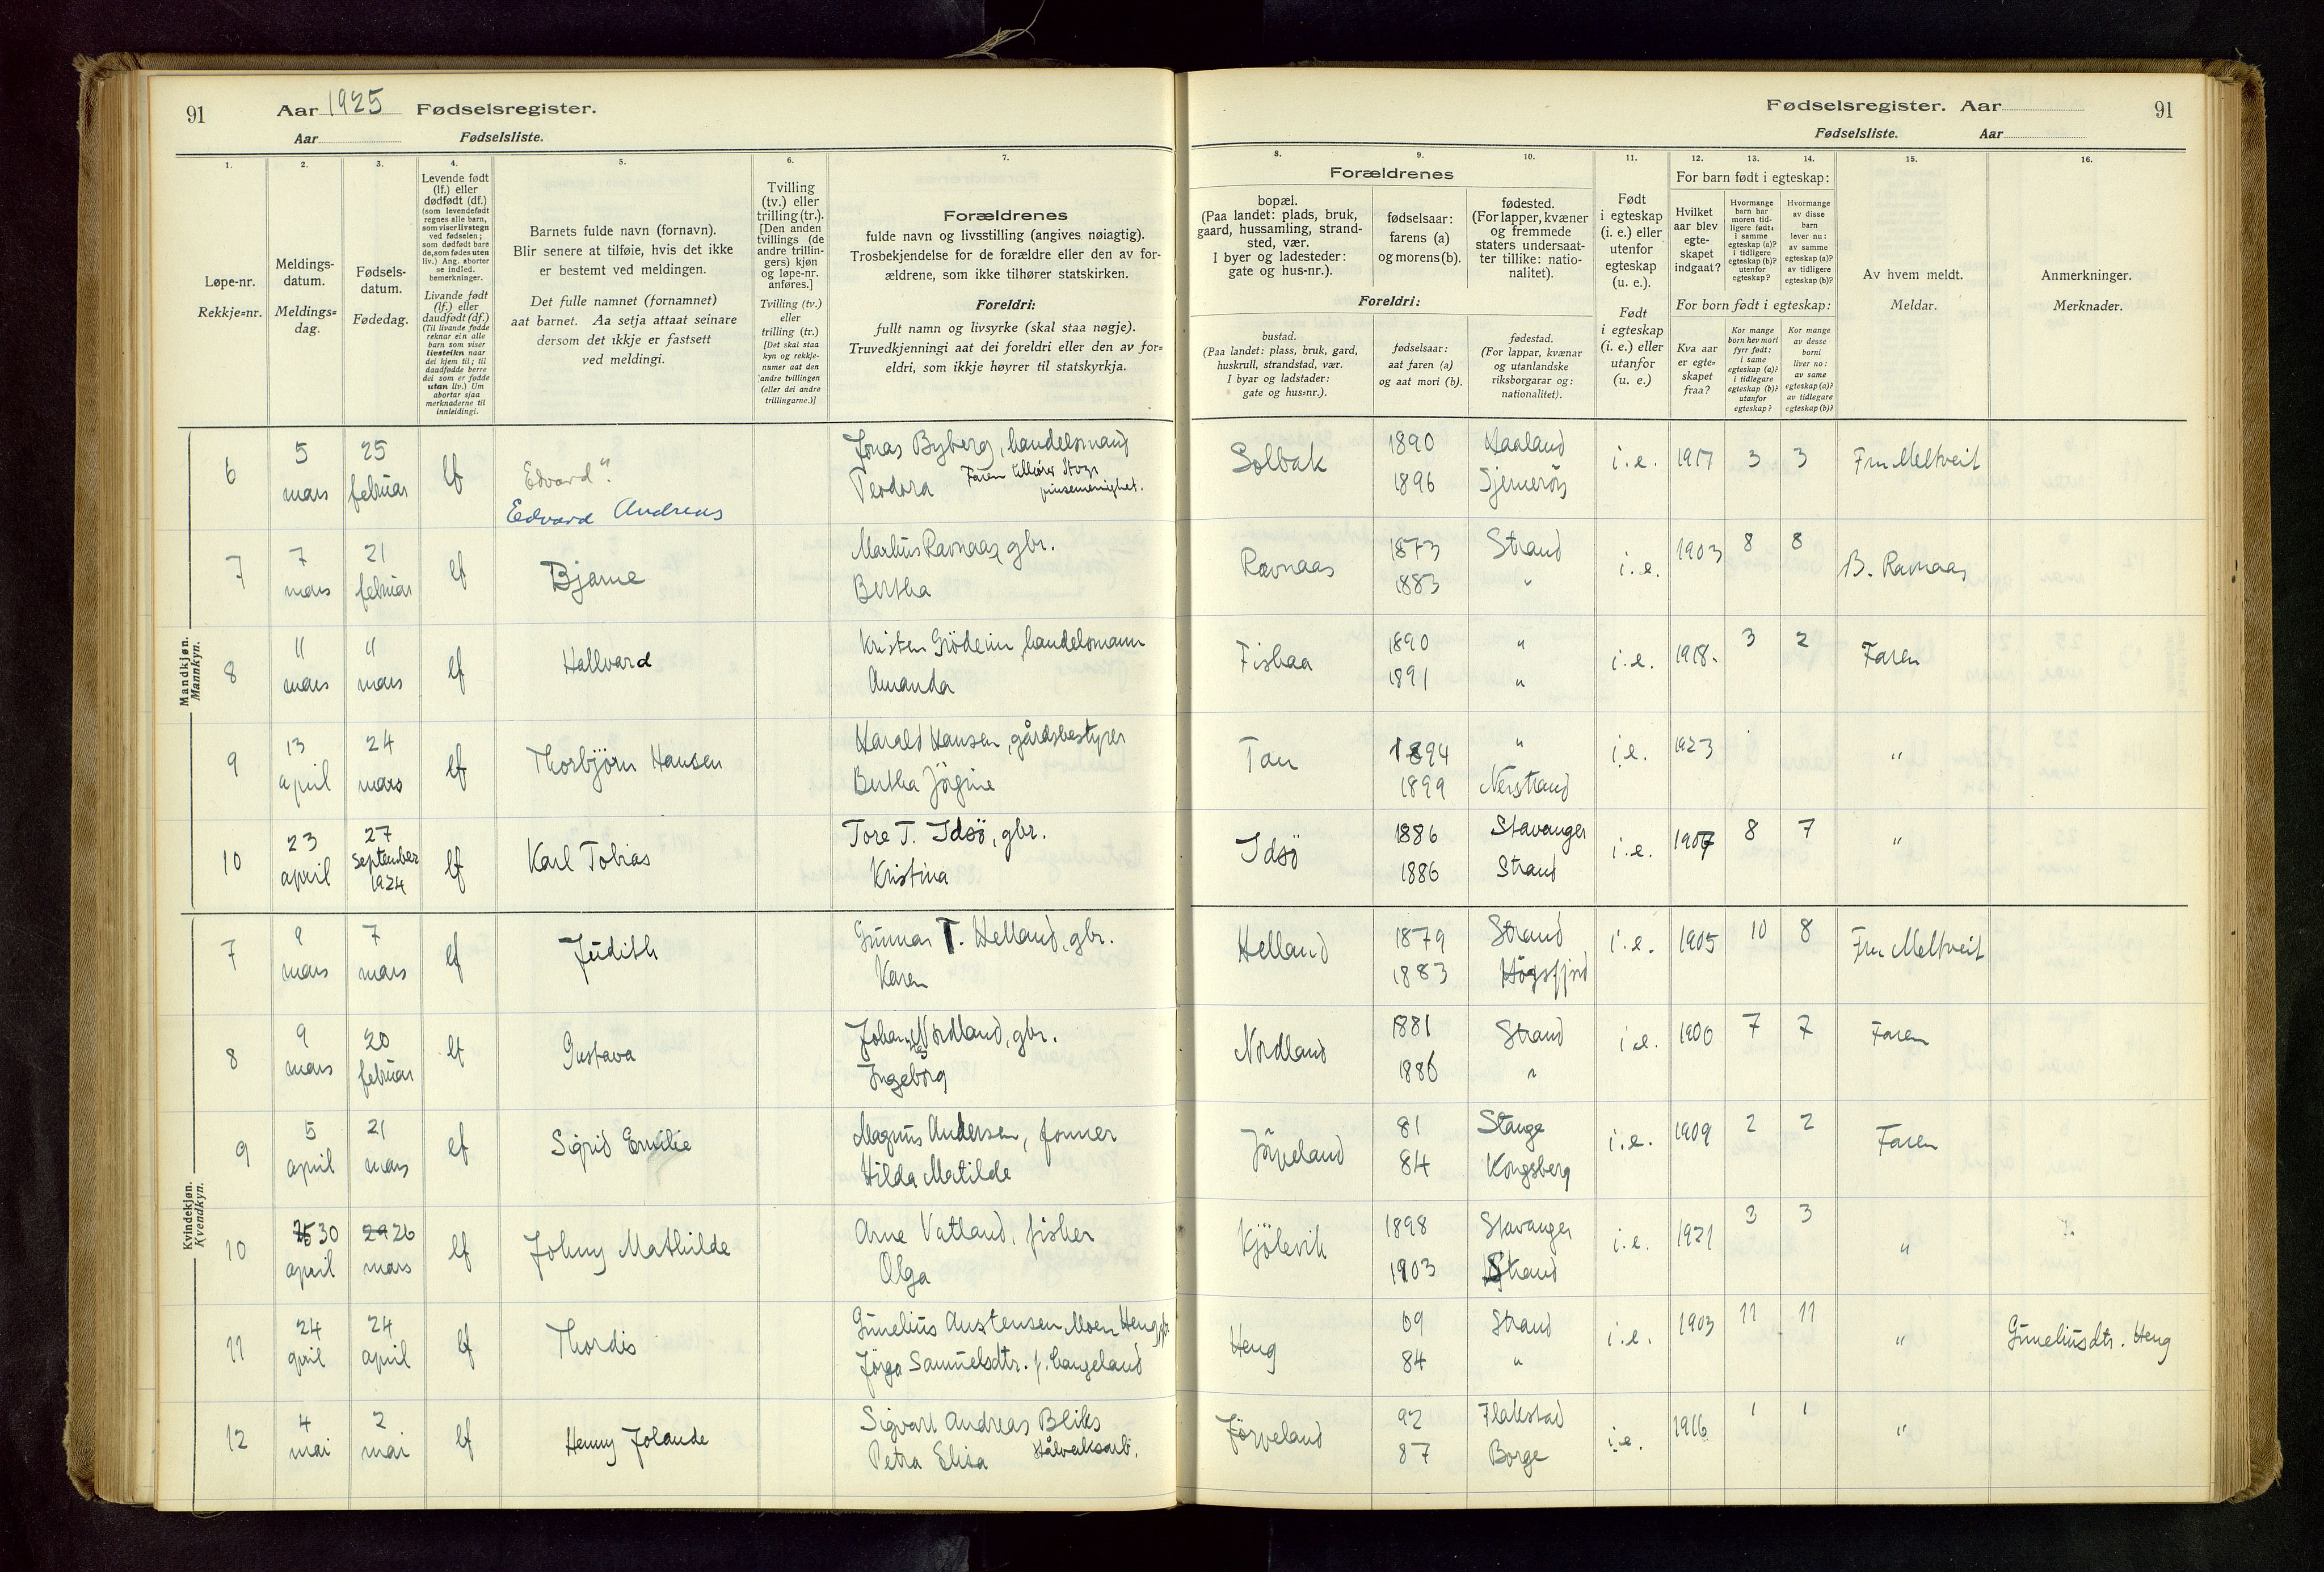 91 Aar 1925 Fødselsregister.
Aar Fødselsliste.
1. 2. 3. 4. 5. 6. 7.
Løpe-nr.
Rekkje=nr.
Meldings-
datum.
Meldings=
dag.
Fødsels-
datum.
Fødedag.
Levende født
(lf.) eller
dødfødt (df.)
(som levendefødt
regnes alle barn,
som viser livstegn
ved fødselen;
som dødfødt bare
de, som fødes uten
liv.) Ang. aborter
se indled.
bemerkninger.
Livande født
(lf.) eller
daudfødt (df.)
(Til livande fødde
reknar ein alle
barn som viser
livsteikn naar
dei kjem til; til
daudfødde berre
dei som er fødde
utan liv.) Um
abortar sjaa
merknaderne til
innleidingi.
Barnets fulde navn (fornavn).
Blir senere at tilføie, hvis det ikke
er bestemt ved meldingen.
Det fulle namnet (fornamnet)
aat barnet. Aa setja attaat seinare
dersom det ikkje er fastsett
ved meldingi.
Tvilling
(tv.) eller
trilling (tr.).
[Den anden
tvillings (de
andre trillin-
gers) kjøn
og løpe-nr.
anføres.]
Tvilling (tv.)
eller
trilling (tr.)
[Det skal staa
kyn og rekkje-
numer aat den
andre tvillingen
(eller dei andre
trillingarne.)]
Forældrenes
fulde navn og livsstilling (angives nøiagtig).
Trosbekjendelse for de forældre eller den av for-
ældrene, som ikke tilhører statskirken.
Foreldri:
fullt namn og livsyrke (skal staa nøgje).
Truvedkjenningi aat dei foreldri eller den av for=
eldri, som ikkje høyrer til statskyrkja.
Mandkjøn.
Mannkyn.
6 5 mars 25 februar lf Edvard".
Edvard Andreas
Jonas Byberg, handelsmand
Teodora Faren tilhører Stvgr
pinsemenighet.
7 7 mars 21 februar lf Bjarne
Markus Ravnaas, gbr.
Bertha
8 " mars " mars lf Hallvard
Kristen Grödeim, handelsmann
Amanda
9 13 april 24 mars lf Thorbjörn Hansen
Harald Hansen, gårdsbestyrer
Bertha Jörgine
10 23 april 27 September 1924 lf Karl Tobias
Tore T. Idsö, gbr.
Kristina
Kvindekjøn.
Kvendkyn.
7 9 mars 7 mars lf Judith
Gunnar T. Helland, gbr.
Karen
8 9 mars 20 februar lf Gustava
Nordland, gbr.
Ingeborg
9 5 april 21 mars lf Sigrid Emilie
Magnus Andersen, former
Hilda Matilde
10 30 april 29 26 mars lf Johny Mathilde
Arne Vatland, fisker
Olga
11 24 april 24 april lf Thordis
Gunelius Austensen Moen Heng
Samuelsdtr. f. Langeland
12 4 mai 2 mai lf Henny Jolande
Sigvart Andreas Bliks
Petra Elisa Stålverksarb.
Fødselsregister. Aar 91
Fødselsliste. Aar
8. 9. 10. 11. 12. 13. 14. 15. 16.
Forældrenes
bopæl.
(Paa landet: plads, bruk,
gaard, hussamling, strand-
sted, vær.
I byer og ladesteder:
gate og hus-nr.).
fødselsaar:
farens (a)
og morens (b).
fødested.
(For lapper, kvæner
og fremmede
staters undersaat-
ter tillike: natio-
nalitet).
Foreldri:
bustad.
(Paa landet: plass, bruk, gard,
huskrull, strandstad, vær.
I byar og ladstader:
gate og hus=nr.).
fødselsaar:
aat faren (a)
og aat mori (b).
fødestad.
(For lappar, kvænar
og utanlandske
riksborgarar og:
nationalitet).
Født
i egteskap
(i. e.) eller
utenfor
egteskap
(u. e.).
Født
i egteskap
(i. e.) eller
utanfor
(u. e.)
For barn født i egteskap:
Hvilket
aar blev
egte-
skapet
indgaat?
Hvormange
barn har
moren tid-
ligere født:
i samme
egteskap (a)?
i tidligere
egteskap (b)?
utenfor
egteskap?
Hvormange
av disse
barn
lever nu:
av samme
egteskap (a)?
av tidligere
egteskap (b)?
For born født i egteskap:
Kva aar
er egte=
skapet
fraa?
Kor mange
born hev mori
fyrr født:
i same
egteskap (a)?
i tidlegare
egteskap (b)?
utanfor
egteskap?
Kor mange
av desse
borni
liver no:
av same
egteskap (a)?
av tidlegare
egteskap (b)?
Av hvem meldt.
Meldar.
Anmerkninger.
Merknader.
Solbak 1890 Haaland i.e. 1917 3 3 Fru Meltveit
1896 Sjernerøy
Ravnaas 1873 Strand i.e. 1903 8 8 B. Ravnaas
1883 "
Fiskaa 1890 " i.e. 1918. 3 2 Faren
1891 "
Tau 1894 " i.e. 1923 "
1899 Nerstrand
Idsö 1886 Stavanger i.e. 1907 8 7 "
1886 Strand
Helland 1879 Strand i.e. 1905 10 8 Fru Meltveit
1883 Högsfjord
Nordland 1881 Strand i.e. 1906 7 7 Faren
1886 "
Jörpeland 81 Stange i.e. 1909 2 2 Faren
84 Kongsberg
Kjölevik 1898 Stavanger i.e. 1921 3 3 "
1903 Strand
Heng 69 Strand i.e. 1903 11 11 " Guneliusdtr. Heng
84 "
Jörpeland 92 Flakstad i.e. 1916 1 1 "
87 Borge